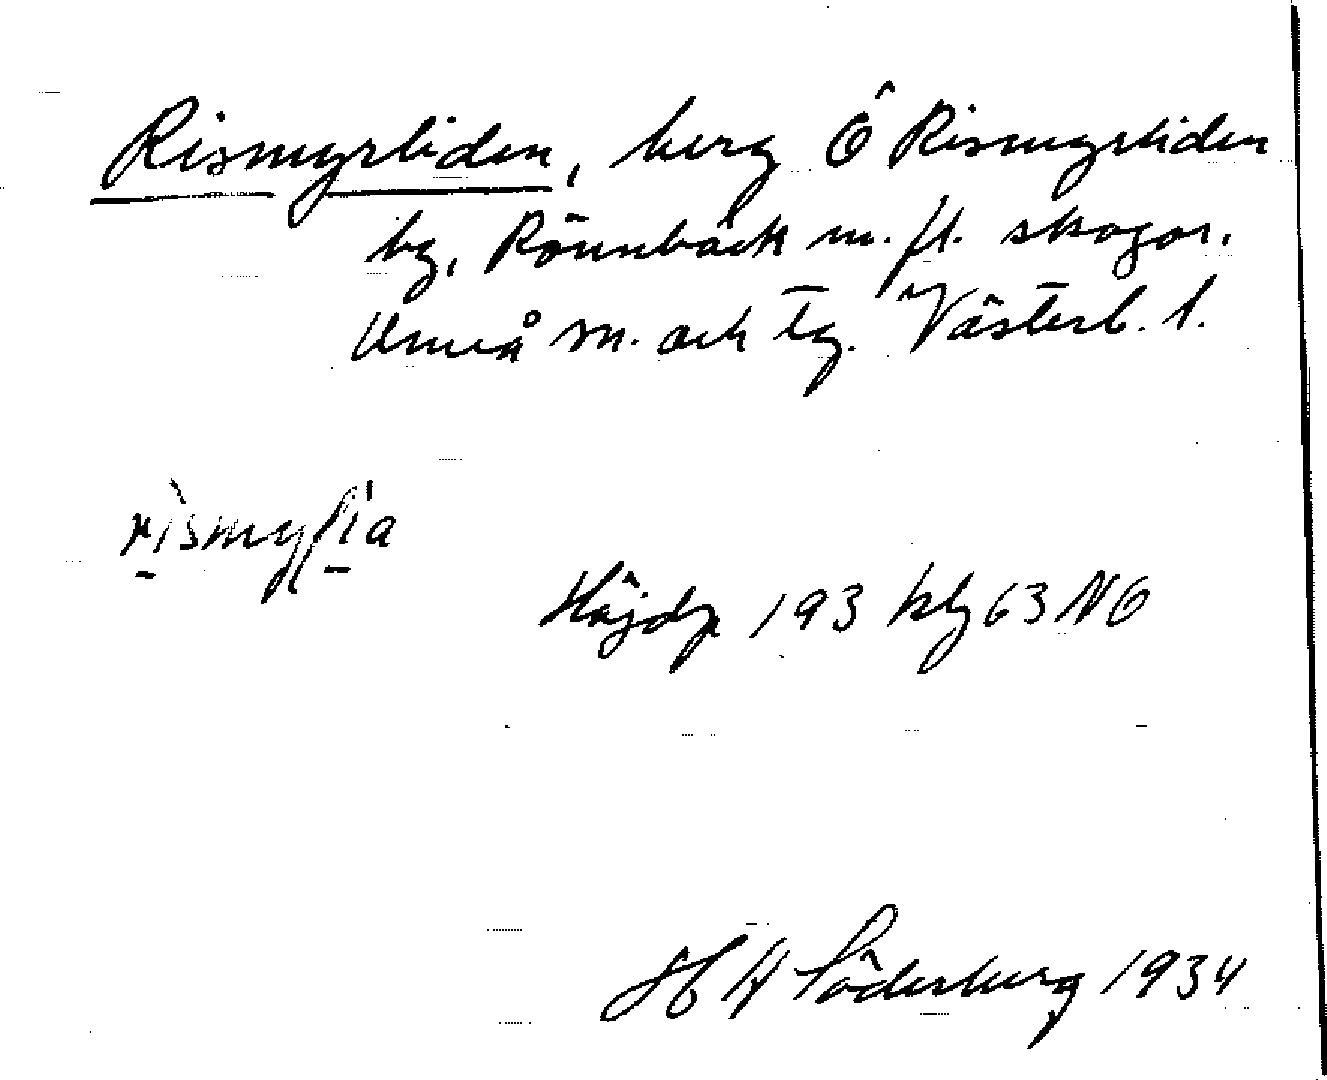 Rismyrliden, berg Ö Rismyrliden
by, Rönnbäck m. fl. skogar,
Umeå sn. och tg. Västerb. l.
rìsmylía
Höjdp 193 kbl 63 NO
H Söderberg 1934